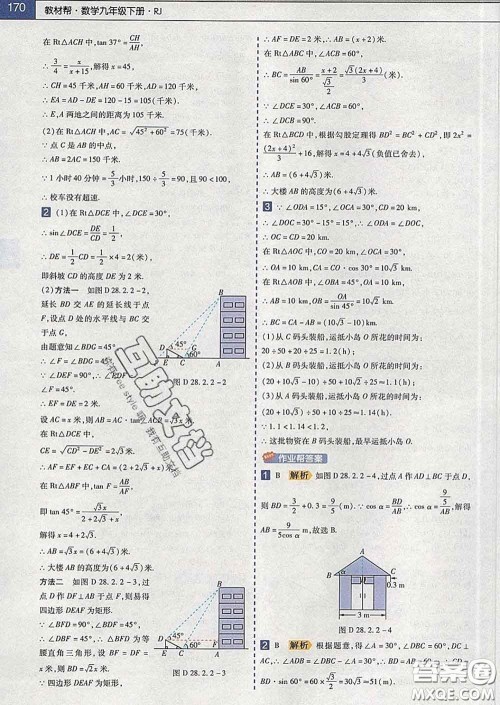 170 教材帮·数学九年级下册·RJ
在 Rt△ACH 中,tan 37°=CH/AH,
∴ 3/4=x/(x+15),解得 x=45,
∴ CH=45 千米,AH=60 千米,AD=120 千米,
∴ EA=AD-DE=120-15=105(千米).
∴ E,A 两地之间的距离为 105 千米.
(2)在 Rt△ACH 中,AC=√(45²+60²)=75(千米).
∵ 点 G 是 AB 的中点,
∵ 1 小时 40 分钟=5/3小时,150÷5/3=90,且 90<100,
∴ 校车没有超速.
2 (1)在 Rt△DCE 中,∠DCE=30°,
∴ sin∠DCE=DE/CD=1/2,
∴ DE=1/2CD=1/2×4=2(米),
即斜坡 CD 的高度 DE 为 2 米.
(2)方法一 如图 D 28.2.2-2,
延长 BD 交 AE 的延长线于点
F,设点 D 处的水平线与 BC 交
于点 G,
由题意知∠BDG=45°,
∴ ∠F=∠BDG=45°,
在 Rt△DEF 中,∠DEF=90°,
∠F=45°.
∴ EF=DE=2 米.
设 AC=x 米,则 AB=√3x 米.
在 Rt△DCE 中,
CE=2√3 米,
∴ AF=EF+EC+CA=(2+2√3+x)米.
在 Rt△ABF 中,tan F=AB/AF,
即 tan 45°=√3x/(2+2√3+x),
解得 x=4+2√3,
∴ AB=√3x=(6+4√3)米.
∴ 大楼 AB 的高度为(6+4√3)米.
方法二 如图 D 28.2.2-3,过
点 D 作 DF⊥AB 于点 F,则易得
四边形 DEAF 为矩形.
∵ ∠BDF=45°,∠BFD=90°,
∴ ∠DBF=45°,∴ △BFD 为等
腰直角三角形,设 BF=DF=x
米,则 BD=√2x 米.
∵ 四边形 DEAF 为矩形,
图 D 28.2.2-2
图 D 28.2.2-3
∴ AF=DE=2 米,∴ AB=(x+2)米.
在 Rt△ABC 中,∠ACB=60°,
∴ BC=AB/sin 60°=(x+2)/(√3/2)=√3(2x+4)/3(米).
∵ ∠DCE=30°,∠ACB=60°,
∴ ∠DCB=90°.
在 Rt△BCD 中,根据勾股定理得 BD²=BC²+CD²,即 2x²=
(2x+4)²/3+16,解得 x=4+4√3(负值已舍去).
∴ AB=(6+4√3)米.
∴ 大楼 AB 的高度为(6+4√3)米.
3 ∵ ∠ODA=15°,∠OCA=30°,
∴ ∠DOC=30°-15°=15°,∴ ∠ODA=∠DOC,
∴ OC=CD=20 km.
在 Rt△OAC 中,∠OCA=30°,
∴ OA=10 km,CA=CO·cos 30°=10√3 km.
∵ ∠OBA=45°,
∴ OA=AB=10 km,OB=OA/sin 45°=10√2 km.
∴ BC=CA-AB=(10√3-10) km.
(1)从 C 码头装船,运抵小岛 O 所花的时间为:
20÷50+20÷25=1.2(h).
(2)从 B 码头装船,运抵小岛 O 所花的时间为:
(10+10√3)÷50+10√2÷25≈1.1(h).
(3)从 A 码头装船,运抵小岛 O 所花的时间为:
(20+10√3)÷50+10÷25≈1.14(h).
∵ 1.1<1.14<1.2,
∴ 这批物资在 B 码头装船,最早运抵小岛 O.
作业帮答案
1 B 解析 如图 D 28.2.2-4,过点 A 作 AD⊥BC 于点 D,
则 BD=3/2+0.3=9/5(m). ∵ cos α=BD/AB,∴ cos α=(9/5)/AB,
∴ AB=9/(5cos α) m,故选 B.
B C
α
0.3 m
3 m
图 D 28.2.2-4
2 B 解析 根据题意,得∠A=30°,∠DBC=60°,DC⊥
AC,∴ ∠ADB=∠DBC-∠A=30°,
BD·sin 60°=30√3≈51(m).
互助文档
答案圈
MXQE.COM